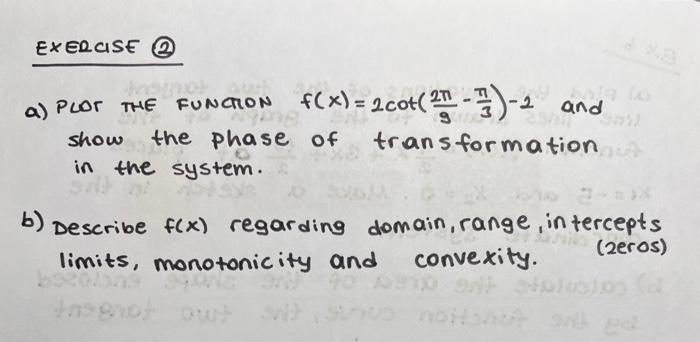 EXERCISE ②
a) PLOT THE FUNCTION f(x) = 2cot(2π/9 - π/3) - 2 and
show the phase of transformation
in the system.
b) Describe f(x) regarding domain, range, intercepts
(zeros)
limits, monotonicity and convexity.